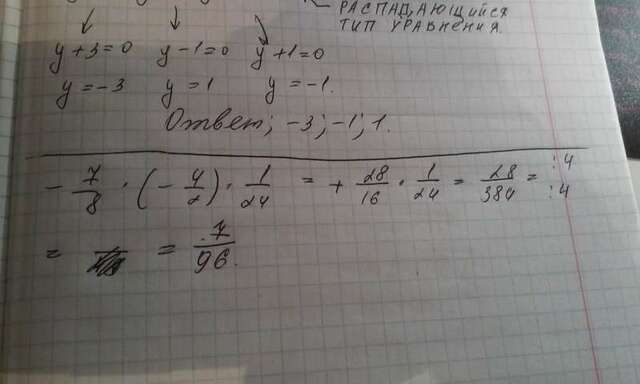 РАСПАДАЮЩИЙСЯ
ТИП УРАВНЕНИЯ.
y+3=0 y-1=0 y+1=0
y=-3 y=1 y=-1.
Ответ; -3; -1; 1.
- 7/8 · (- 4/2) · 1/24 = + 28/16 · 1/24 = 28/384 = :4 :4
= = 7/96.